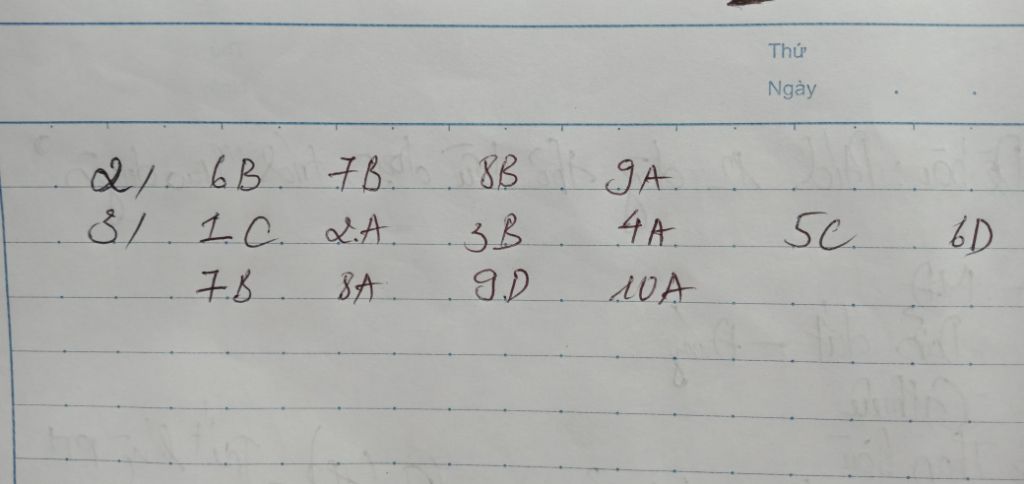 Thứ
Ngày
2/ 6B 7B 8B 9A
3/ 1C 2A 3B 4A 5C 6D
7B 8A 9D 10A